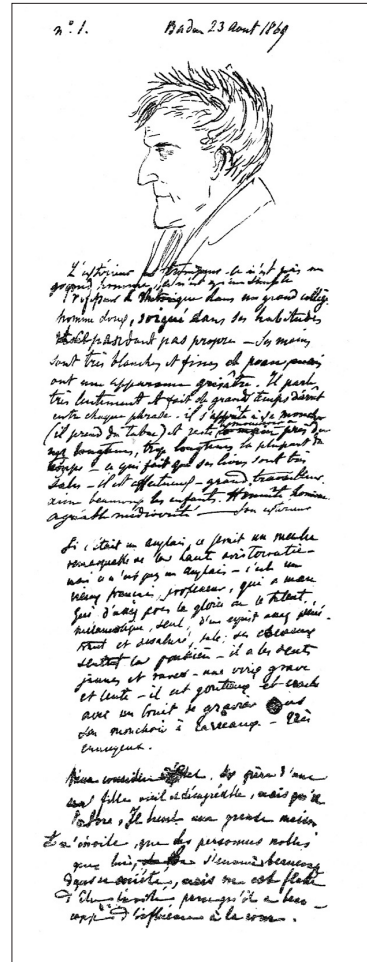 n° 1. Baden 23 Aout 1869
L'extérieur est trompeur - ce n'est pas un
grand homme, ce n'est qu'un simple
professeur de rhétorique dans un grand collège
homme doux, soigné dans ses habitudes
et cependant pas propre - Ses mains
sont très blanches et fines de peau mais
ont une apparence grisâtre. Il parle
très lentement et fait de grands temps d'arrêt
entre chaque parole. il s'apprête à se moucher
(il prend du tabac) et reste le mouchoir près du
nez longtemps, trop longtemps la plupart du
temps - ce qui fait que ses livres sont très
sales - il est affectueux - grand travailleur.
aime beaucoup les enfants. Honnête homme
agréable médiocrité - Son extérieur
Si c'était un anglais, ce serait un membre
remarquable de la haute aristocratie -
mais ce n'est pas un anglais - c'est un
vieux français, professeur, qui a manqué
d'avoir la gloire ou le talent.
mélancolique, seul, d'un esprit assez péné-
trant et désabusé, sale, ses cheveux
sentent la poussière - il a les dents
jaunes et rares - une voix grave
et lente - il est goutteux et crache
avec un bruit de gravier dans
son mouchoir à carreaux - très
ennuyeux.
Pêre d'une
fille vieille et désagréable, mais qu'il
adore, Il tient une grande maison
n'invite, que des personnes nobles
que lui, s'ennuie beaucoup
dans sa société, mais en est flatté
d'être invité parce qu'il a beau-
coup d'influence à la cour.